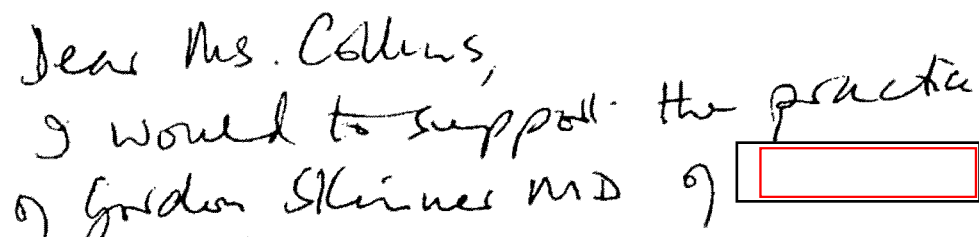 Dear Ms. Collins,
I would to support the practice
of Gordon Skinner MD of